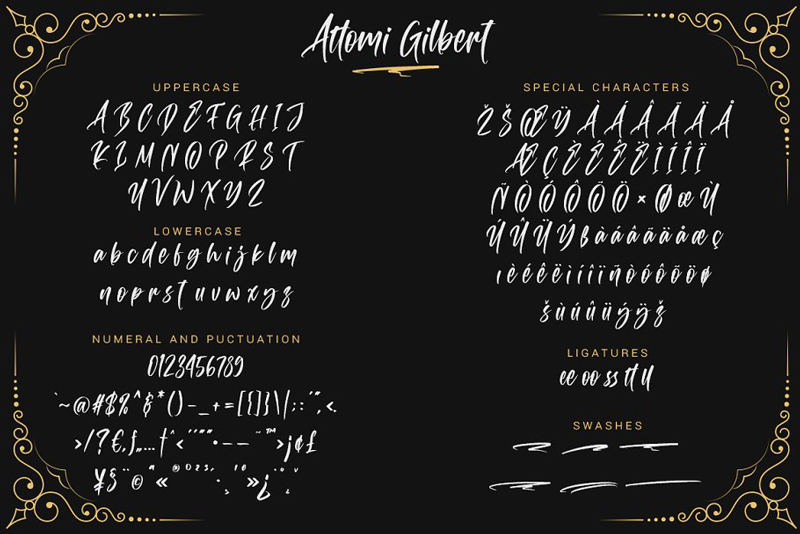 Attomi Gilbert
UPPERCASE
A B C D E F G H I J
K L M N O P R S T
U V W X Y Z
LOWERCASE
a b c d e f g h i j k l m
n o p r s t u v w x y z
NUMERAL AND PUCTUATION
0123456789
`~@#$%^&*()-_+=[{]}\|;:'",<.
>/?€‚ƒ„…†ˆ‹''""•–—˜™›¡¢£
¥§¨©ª«
»¿
SPECIAL CHARACTERS
Ž Š Œ Ÿ À Á Â Ã Ä Å
Æ Ç È É Ê Ë Ì Í Î Ï
Ñ Ò Ó Ô Õ Ö × Ø œ Ù
Ú Û Ü Ý ß à á â ã ä å æ ç
ı è é ê ë ì í î ï ñ ò ó ô õ ö ø
š ù ú û ü ý ÿ ž
LIGATURES
ee oo ss tt ll
SWASHES